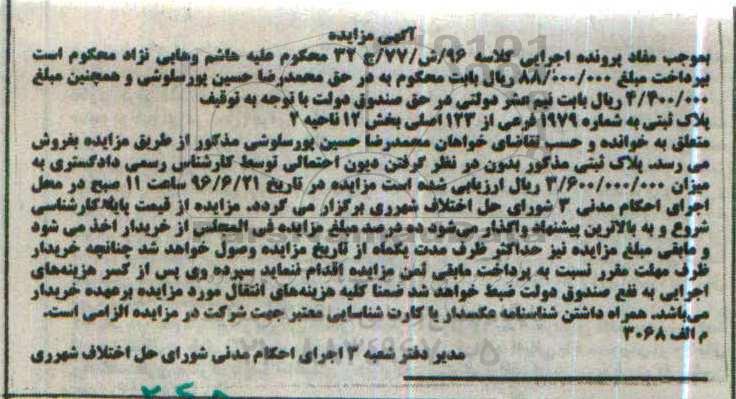 آگهی مزایده
بموجب مفاد پرونده اجرایی کلاسه ۹۶/ش/۷۷/ج ۳۲ محکوم علیه هاشم وهابی نژاد محکوم است
بپرداخت مبلغ ۸۸/۰۰۰/۰۰۰ ریال بابت محکوم به در حق محمدرضا حسین پورسلوشی و همچنین مبلغ
۴/۴۰۰/۰۰۰ ریال بابت نیم عشر دولتی در حق صندوق دولت با توجه به توقیف
پلاک ثبتی به شماره ۱۹۷۹ فرعی از ۱۲۳ اصلی بخش ۱۲ ناحیه ۲
متعلق به خوانده و حسب تقاضای خواهان محمدرضا حسین پورسلوشی مذکور از طریق مزایده بفروش
می رسد. پلاک ثبتی مذکور بدون در نظر گرفتن دیون احتمالی توسط کارشناس رسمی دادگستری به
میزان ۳/۶۰۰/۰۰۰/۰۰۰ ریال ارزیابی شده است مزایده در تاریخ ۹۶/۶/۲۱ ساعت ۱۱ صبح در محل
اجرای احکام مدنی ۳ شورای حل اختلاف شهرری برگزار می گردد. مزایده از قیمت پایه کارشناسی
شروع و به بالاترین پیشنهاد واگذار می‌شود ده درصد مبلغ مزایده فی المجلس از خریدار اخذ می شود
و مابقی مبلغ مزایده نیز حداکثر ظرف مدت یکماه از تاریخ مزایده وصول خواهد شد چنانچه خریدار
ظرف مهلت مقرر نسبت به پرداخت مابقی ثمن مزایده اقدام ننماید سپرده وی پس از کسر هزینه‌های
اجرایی به نفع صندوق دولت ضبط خواهد شد ضمنا کلیه هزینه‌های انتقال مورد مزایده برعهده خریدار
می‌باشد. همراه داشتن شناسنامه عکسدار یا کارت شناسایی معتبر جهت شرکت در مزایده الزامی است.
م الف ۳۰۶۸
مدیر دفتر شعبه ۳ اجرای احکام مدنی شورای حل اختلاف شهرری